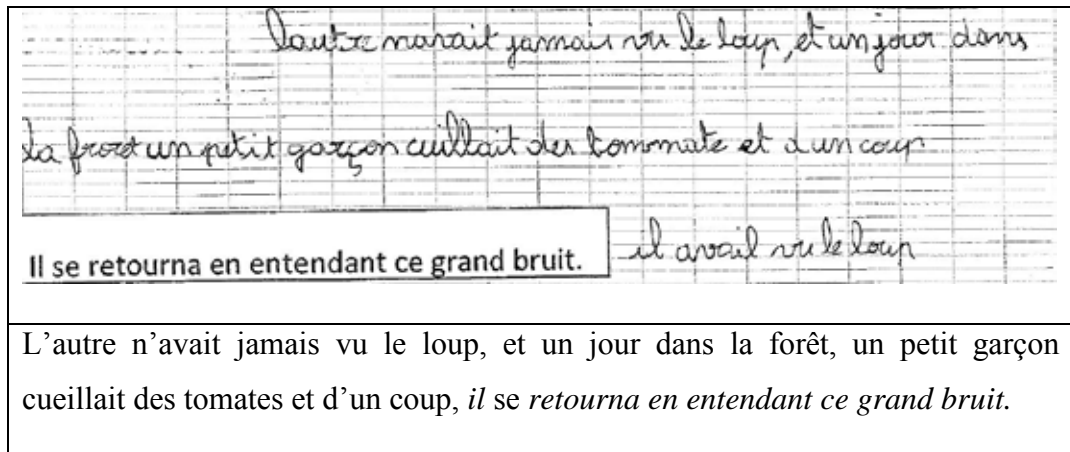 lautre navait jamais vu le loup, et un jour dans
la frorêt un petit garçon cuillait des tommate et d un coup
Il se retourna en entendant ce grand bruit. il avail vu le loup
L’autre n’avait jamais vu le loup, et un jour dans la forêt, un petit garçon
cueillait des tomates et d’un coup, il se retourna en entendant ce grand bruit.